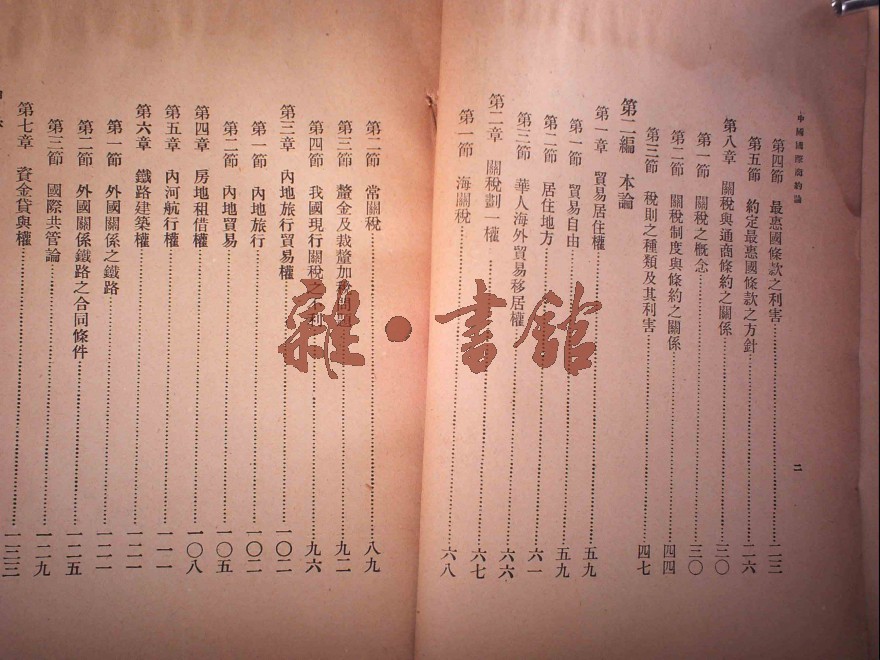 中國國際商約論
第四節 最惠國條款之利害 二三
第五節 約定最惠國條款之方針 二六
第八章 關稅與通商條約之關係 三〇
第一節 關稅之概念 三〇
第二節 關稅制度與條約之關係 四四
第三節 稅則之種類及其利害 四七
第二編 本論
第一章 貿易居住權 五九
第一節 貿易自由 五九
第二節 居住地方 六一
第三節 華人海外貿易移居權 六六
第二章 關稅劃一權 六七
第一節 海關稅 六八
二
第二節 常關稅 八九
第三節 釐金及裁釐加稅問題 九二
第四節 我國現行關稅之不利 九六
第三章 內地旅行貿易權 一〇二
第一節 內地旅行 一〇二
第二節 內地貿易 一〇五
第四章 房地租借權 一〇八
第五章 內河航行權 一一一
第六章 鐵路建築權 一二一
第一節 外國關係之鐵路 一二一
第二節 外國關係鐵路之合同條件 一二五
第三節 國際共管論 一二九
第七章 資金貸與權 一三三
雜·書館